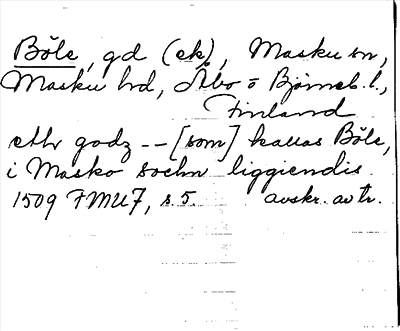 Böle, gd (ek), Masku sn,
Masku hd, Åbo o Björneb. l.,
Finland
ett godz -- [som] kallas Böle,
i Masko sochn liggiendis.
1509 FMU 7, s. 5. avskr. av tr.